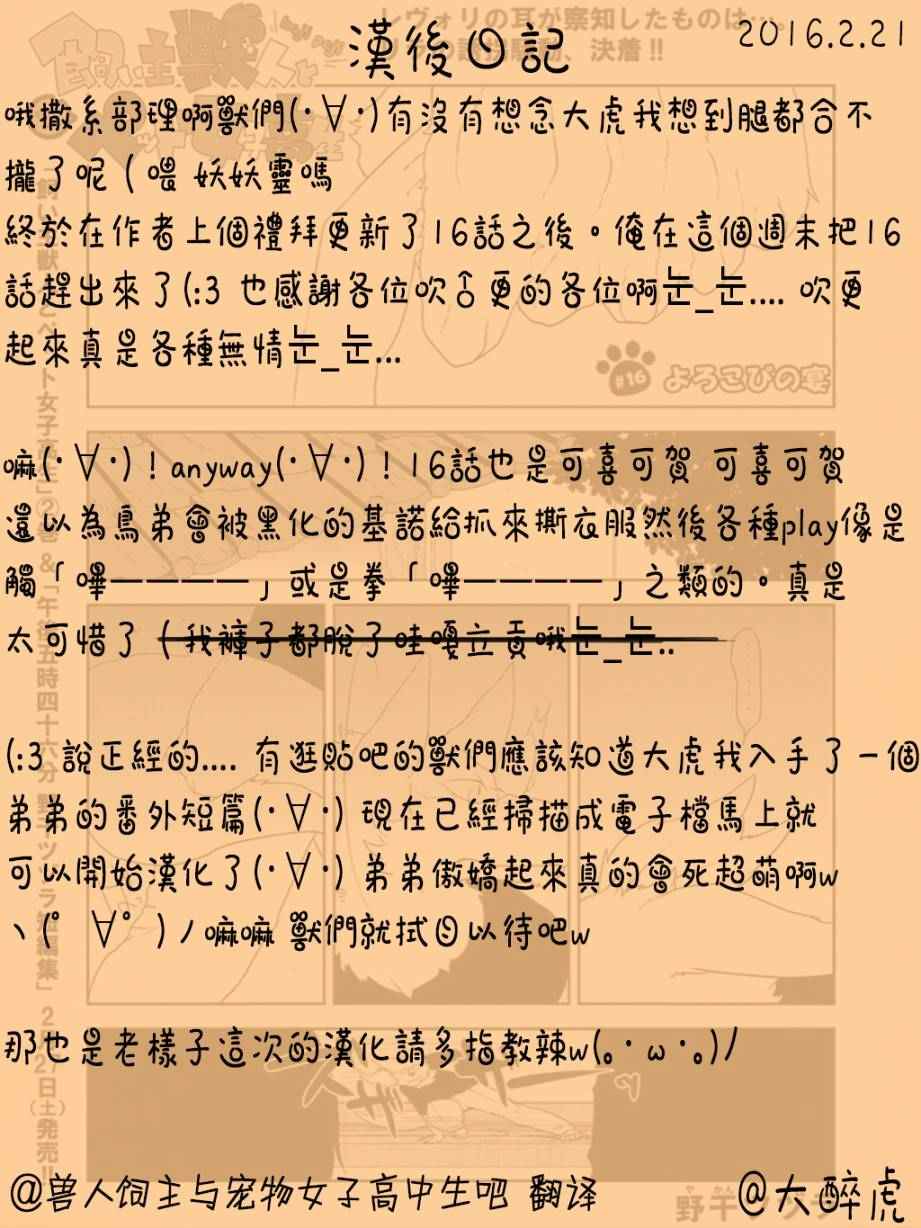 漢後日記
2016.2.21
哦撒系部理啊獸們(･∀･)有沒有想念大虎我想到腿都合不
攏了呢（喂 妖妖靈嗎
終於在作者上個禮拜更新了16話之後。俺在這個週末把16
話趕出來了(:3 也感謝各位吹更的各位啊눈_눈.... 吹更
起來真是各種無情눈_눈...
嘛(･∀･)！anyway(･∀･)！16話也是可喜可賀 可喜可賀
還以為鳥弟會被黑化的基諾給抓來撕衣服然後各種play像是
觸「嗶————」或是拳「嗶————」之類的。真是
太可惜了（我褲子都脫了哇嘎立貢哦눈_눈..
(:3 說正經的.... 有逛貼吧的獸們應該知道大虎我入手了一個
弟弟的番外短篇(･∀･) 現在已經掃描成電子檔馬上就
可以開始漢化了(･∀･) 弟弟傲嬌起來真的會死超萌啊w
ヽ(ﾟ∀ﾟ)ノ嘛嘛 獸們就拭目以待吧w
那也是老樣子這次的漢化請多指教辣w(｡･ω･｡)ﾉ
@兽人饲主与宠物女子高中生吧 翻译
@大醉虎
レヴォリの耳が察知したものは…。
決着!!
#16 よろこびの宴